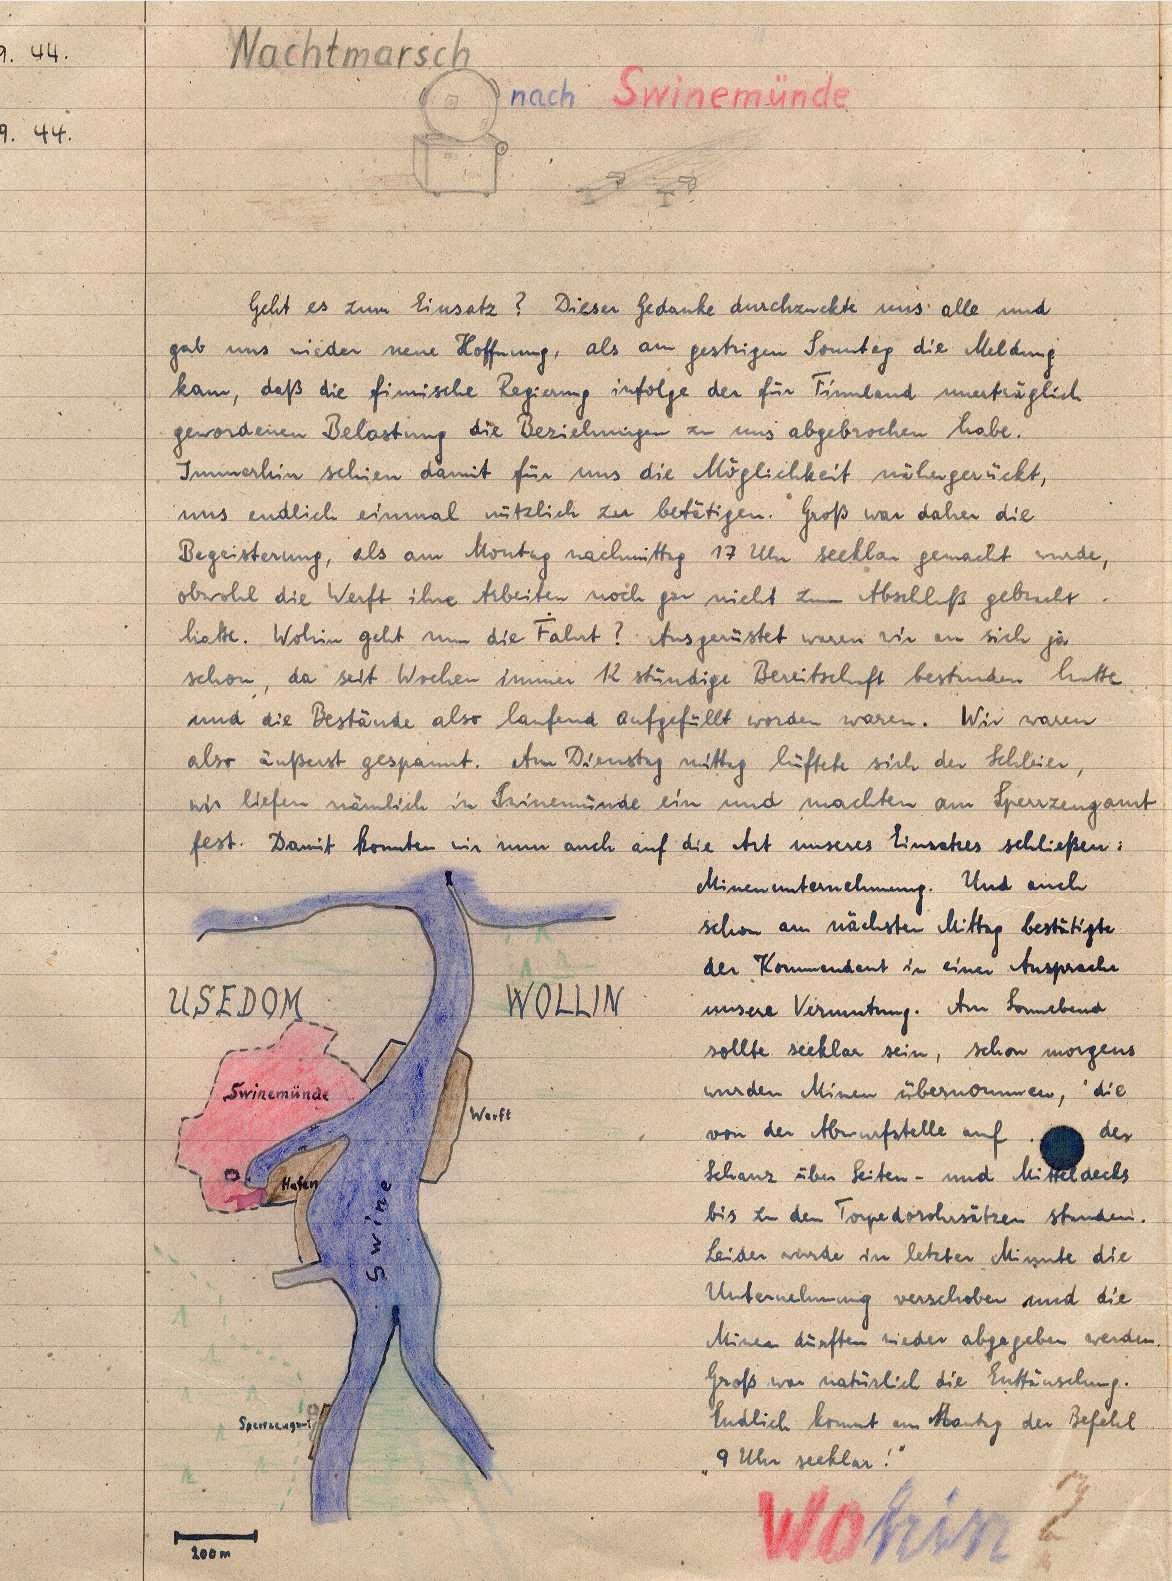 9. 44.
Nachtmarsch
nach Swinemünde
9. 44.
Geht es zum Einsatz? Dieser Gedanke durchzuckte uns alle und
gab uns wieder neue Hoffnung, als am gestrigen Sonntag die Meldung
kam, daß die finnische Regierung infolge der für Finnland unerträglich
gewordenen Belastung die Beziehungen zu uns abgebrochen habe.
Immerhin schien damit für uns die Möglichkeit nähergerückt,
uns endlich einmal nützlich zu betätigen. Groß war daher die
Begeisterung, als am Montag nachmittag 17 Uhr seeklar gemacht wurde,
obwohl die Werft ihre Arbeiten noch gar nicht zum Abschluß gebracht
hatte. Wohin geht nun die Fahrt? Ausgerüstet waren wir an sich ja
schon, da seit Wochen immer 12 stündige Bereitschaft bestanden hatte
und die Bestände also laufend aufgefüllt worden waren. Wir waren
also äußerst gespannt. Am Dienstag mittag lüftete sich der Schleier,
wir liefen nämlich in Swinemünde ein und machten am Sperrzeugamt
fest. Damit konnten wir nun auch auf die Art unseres Einsatzes schließen:
Minenunternehmung. Und auch
schon am nächsten Mittag bestätigte
der Kommandant in einer Ansprache
unsere Vermutung. Am Sonnabend
sollte seeklar sein, schon morgens
wurden Minen übernommen, die
von der Abwurfstelle auf der
Schanz über Seiten- und Mitteldecks
bis zu den Torpedorohrsätzen standen.
Leider wurde in letzter Minute die
Unternehmung verschoben und die
Minen durften wieder abgegeben werden.
Groß war natürlich die Enttäuschung.
Endlich kommt am Montag der Befehl
"9 Uhr seeklar!"
Wohin
USEDOM
WOLLIN
Swinemünde
Werft
Hafen
Swine
Sperrzeugamt
200 m